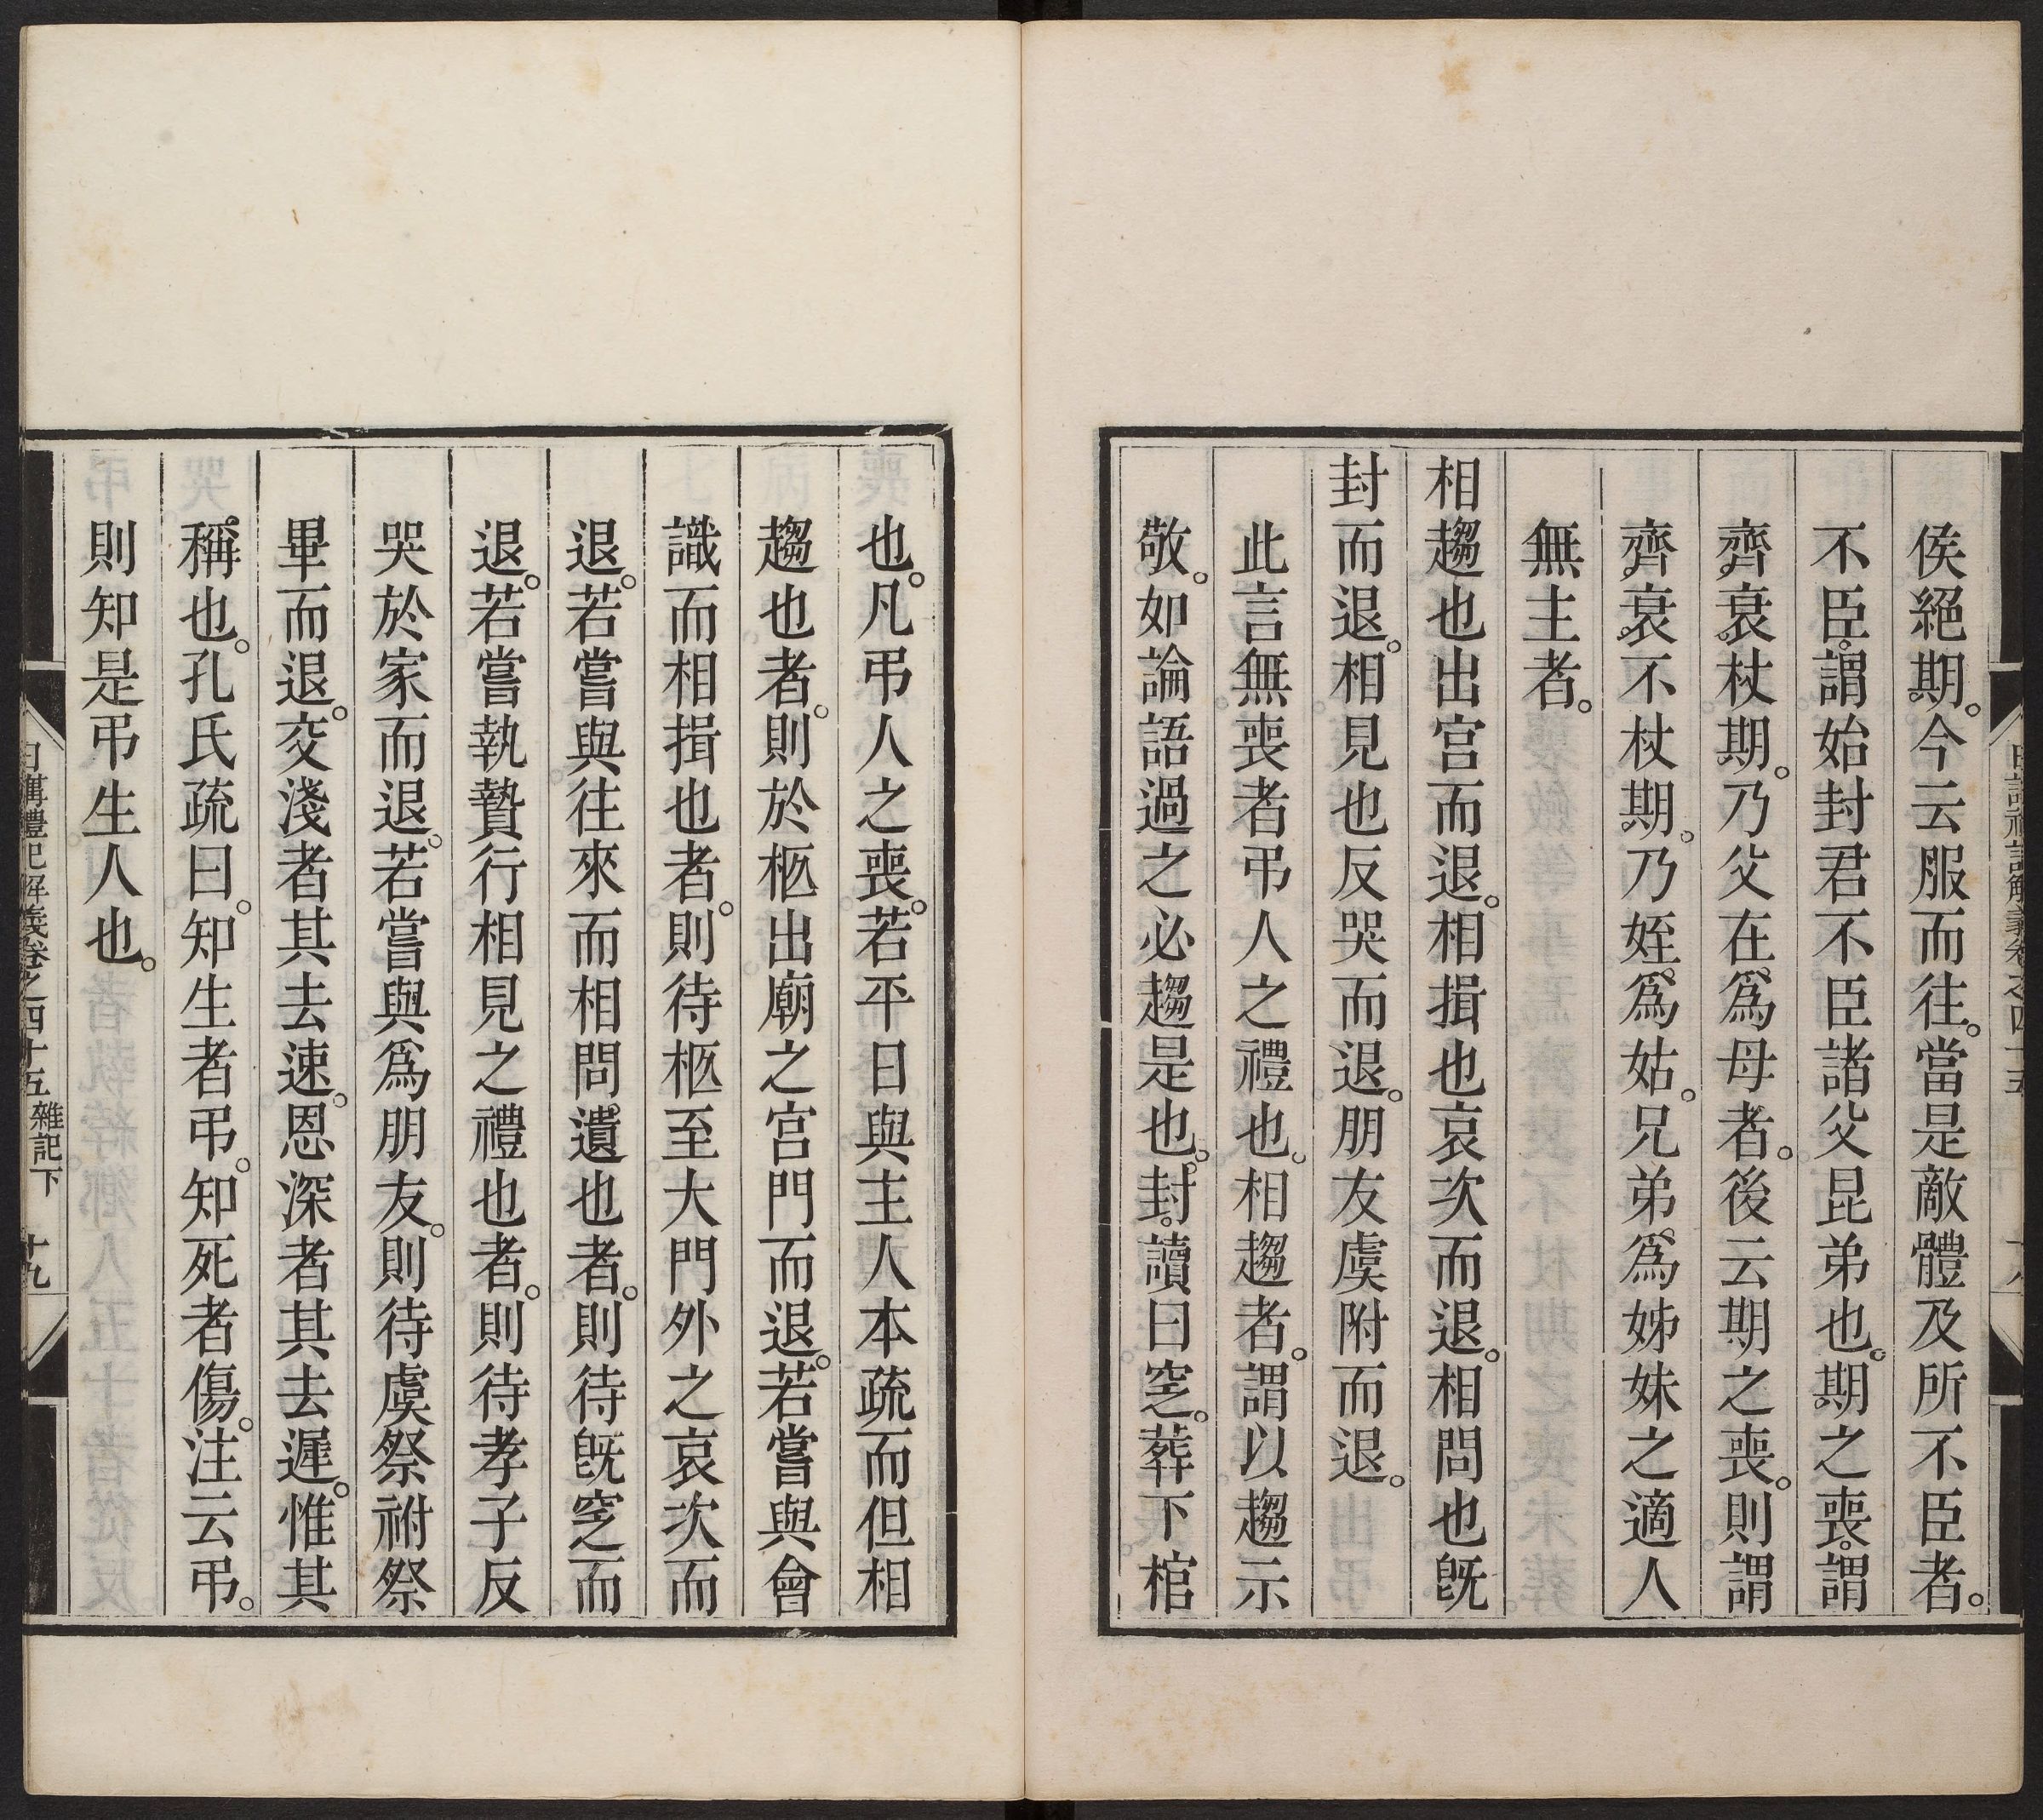 侯絕期。今云服而往。當是敵體及所不臣者。
不臣。謂始封君不臣諸父昆弟也。期之喪。謂
齊衰杖期。乃父在。爲母者。後云期之喪。則謂
齊衰不杖期。乃姪。爲姑。兄弟。爲姊妹之適人
無主者。
相趨也出宮而退。相揖也哀次而退。相問也旣
封而退。相見也反哭而退。朋友虞附而退。
此言無喪者弔人之禮也。相趨者。謂以趨示
敬。如論語過之必趨是也。封。讀曰窆。葬下棺
也。凡弔人之喪。若平日與主人本疏而但相
趨也者。則於柩出廟之宮門而退。若嘗與會
識而相揖也者。則待柩至大門外之哀次而
退。若嘗與往來而相問。遺也者。則待旣窆而
退。若嘗執贄行相見之禮也者。則待孝子反
哭於家而退。若嘗與爲朋友。則待虞祭祔祭
畢而退。交淺者其去速。恩深者其去遲。惟其
稱也。孔氏疏曰。知生者弔。知死者傷。注云弔。
則知是弔生人也。
日講禮記解義卷之四十五 雜記下 十九